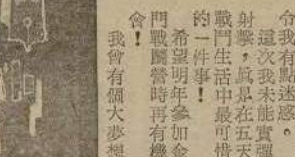 令我有點迷惑。
這次我未能實彈
射擊，眞是在五天
戰鬥生活中最可惜
的一件事！
希望明年參加金
門戰鬪營時再有機
會！
我曾有個大夢想